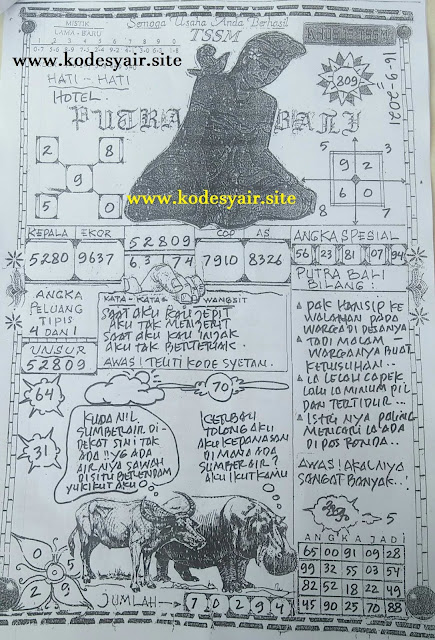 Semoga Usaha Anda Berhasil
TSSM
MISTIK
LAMA - BARU
www.kodesyair.site
HATI - HATI
HOTEL.
PUTRA BALI
809
16-9-2021
2 8
9
5 0
5 3
9 2
6 0
4 7
www.kodesyair.site
KEPALA EKOR
5280 9637
52809
63174
COP AS
7910 8326
ANGKA SPESIAL
56 23 81 07 94
ANGKA
PELUANG
TIPIS
4 DAN 1
UNSUR
52809
KATA - KATA WANGSIT
SAAT AKU KAU JEPIT
AKU TAK MENJERIT
SAAT AKU KAU INJAK
AKU TAK BERTERIAK.
AWAS! TELITI KODE SYETAN.
PUTRA BALI
BILANG:
PAK HANSIP KE
WALAHAN PADA
WARGA DI DESANYA
TADI MALAM
WARGANYA BUAT
KERUSUHAN..
IA LELAH CAPEK
LALU IA MINUM PIL
DAN TERTIDUR...
ISTRI NYA PALING
MENCARI IA ADA
DI POS RONDA..
AWAS! AKALNYA
SANGAT BANYAK..!
64
70
31
KUDA NIL
SUMBER AIR DI-
DEKAT SINI TAK
ADA!! YG ADA
AIR NYA SAWAH
DISITU BERENDAM
YUK IKUT AKU
KERBAU
TOLONG AKU
AKU KEPANASAN
DI MANA ADA
SUMBER AIR?
AKU IKUT KAMU
5
0 5
2 9
JUMLAH → 7 0 2 9 4
ANGKA JADI
65 00 91 09 28
99 32 55 03 54
82 52 18 22 49
45 90 25 70 88